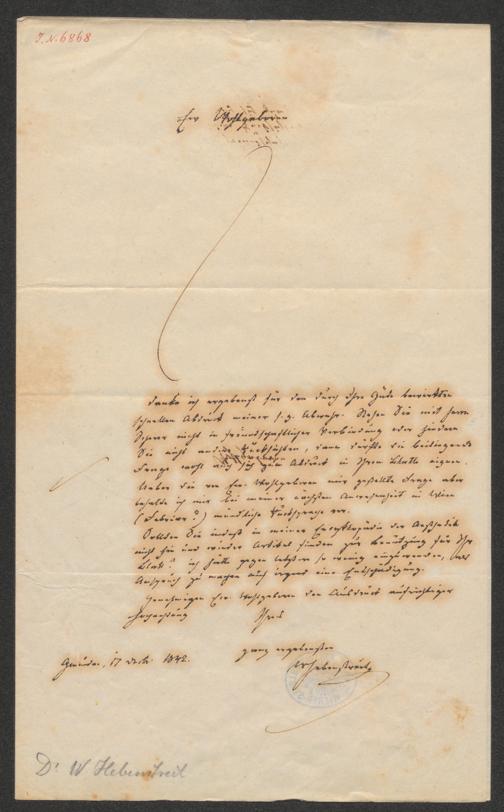 J.N. 6868
Euer Wohlgeboren
danke ich ergebenst für den durch Ihre Güte bewirkten
schnellen Abdruck meiner s. g. Abwehr. Stehen Sie mit Herrn
nicht in freundschaftlicher Verbindung oder hindern
Sie nicht andere Rücksichten, dann dürfte die beiliegende
Frage wohl auch sich zum Abdruck in Ihrem Blatte eignen.
Ueber die von Euer Wohlgeboren mir gestellte Frage aber
behalte ich mir bei meiner nächsten Anwesenheit in Wien
(Februar?) mündliche Rücksprache vor.
Sollten Sie indeß in meiner Encyklopädie der Aesthetik
nicht hin und wieder Artikel finden zur Benützung für Ihr
Blatt? ich hätte gegen letztere so wenig einzuwenden, als
Anspruch zu machen auf irgend eine Entschädigung.
Genehmigen Euer Wohlgeboren den Ausdruck aufrichtiger
Hochachtung Ihres
ganz ergebensten
Gmunden, 17 1842.
WHebenstreit
Dr W Hebenstreit